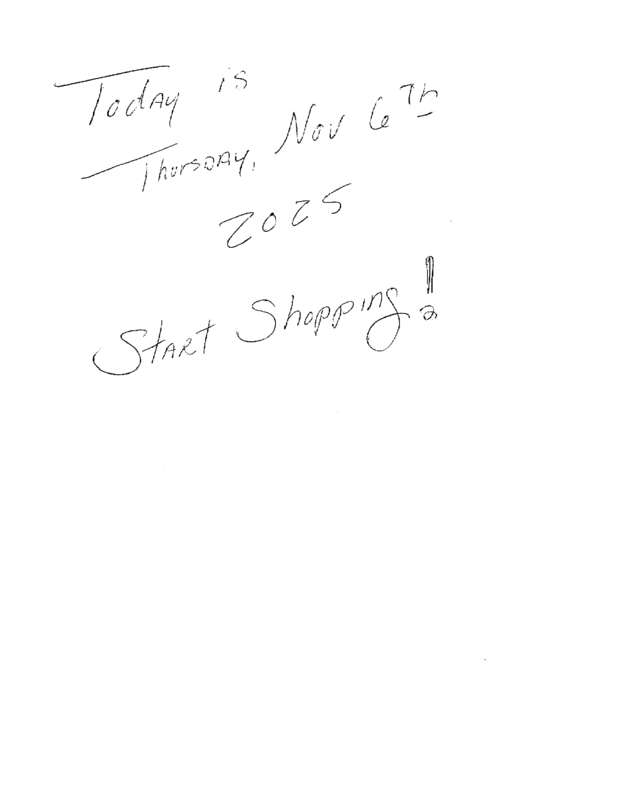 Today is
Thursday, Nov 6Th
2025
Start Shopping!